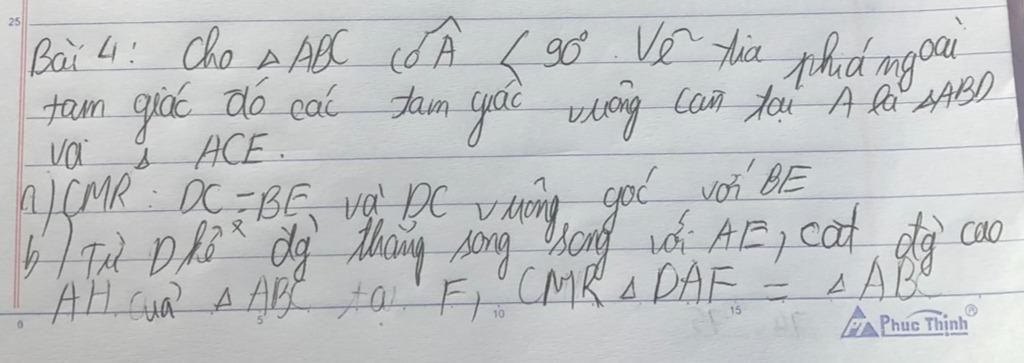 25
Bài 4: Cho △ ABC có Â < 90°. Vẽ tia phá ngoài
tam giác đó các tam giác vuông cân tại A là △ABD
và △ ACE.
a) CMR: DC = BE và DC vuông góc với BE
b) Từ D kẻ đg thẳng song song với AE, cắt đg cao
AH của △ ABC tại F, CMR △ DAF = △ ABC
0 5 10 15
Phuc Thinh®